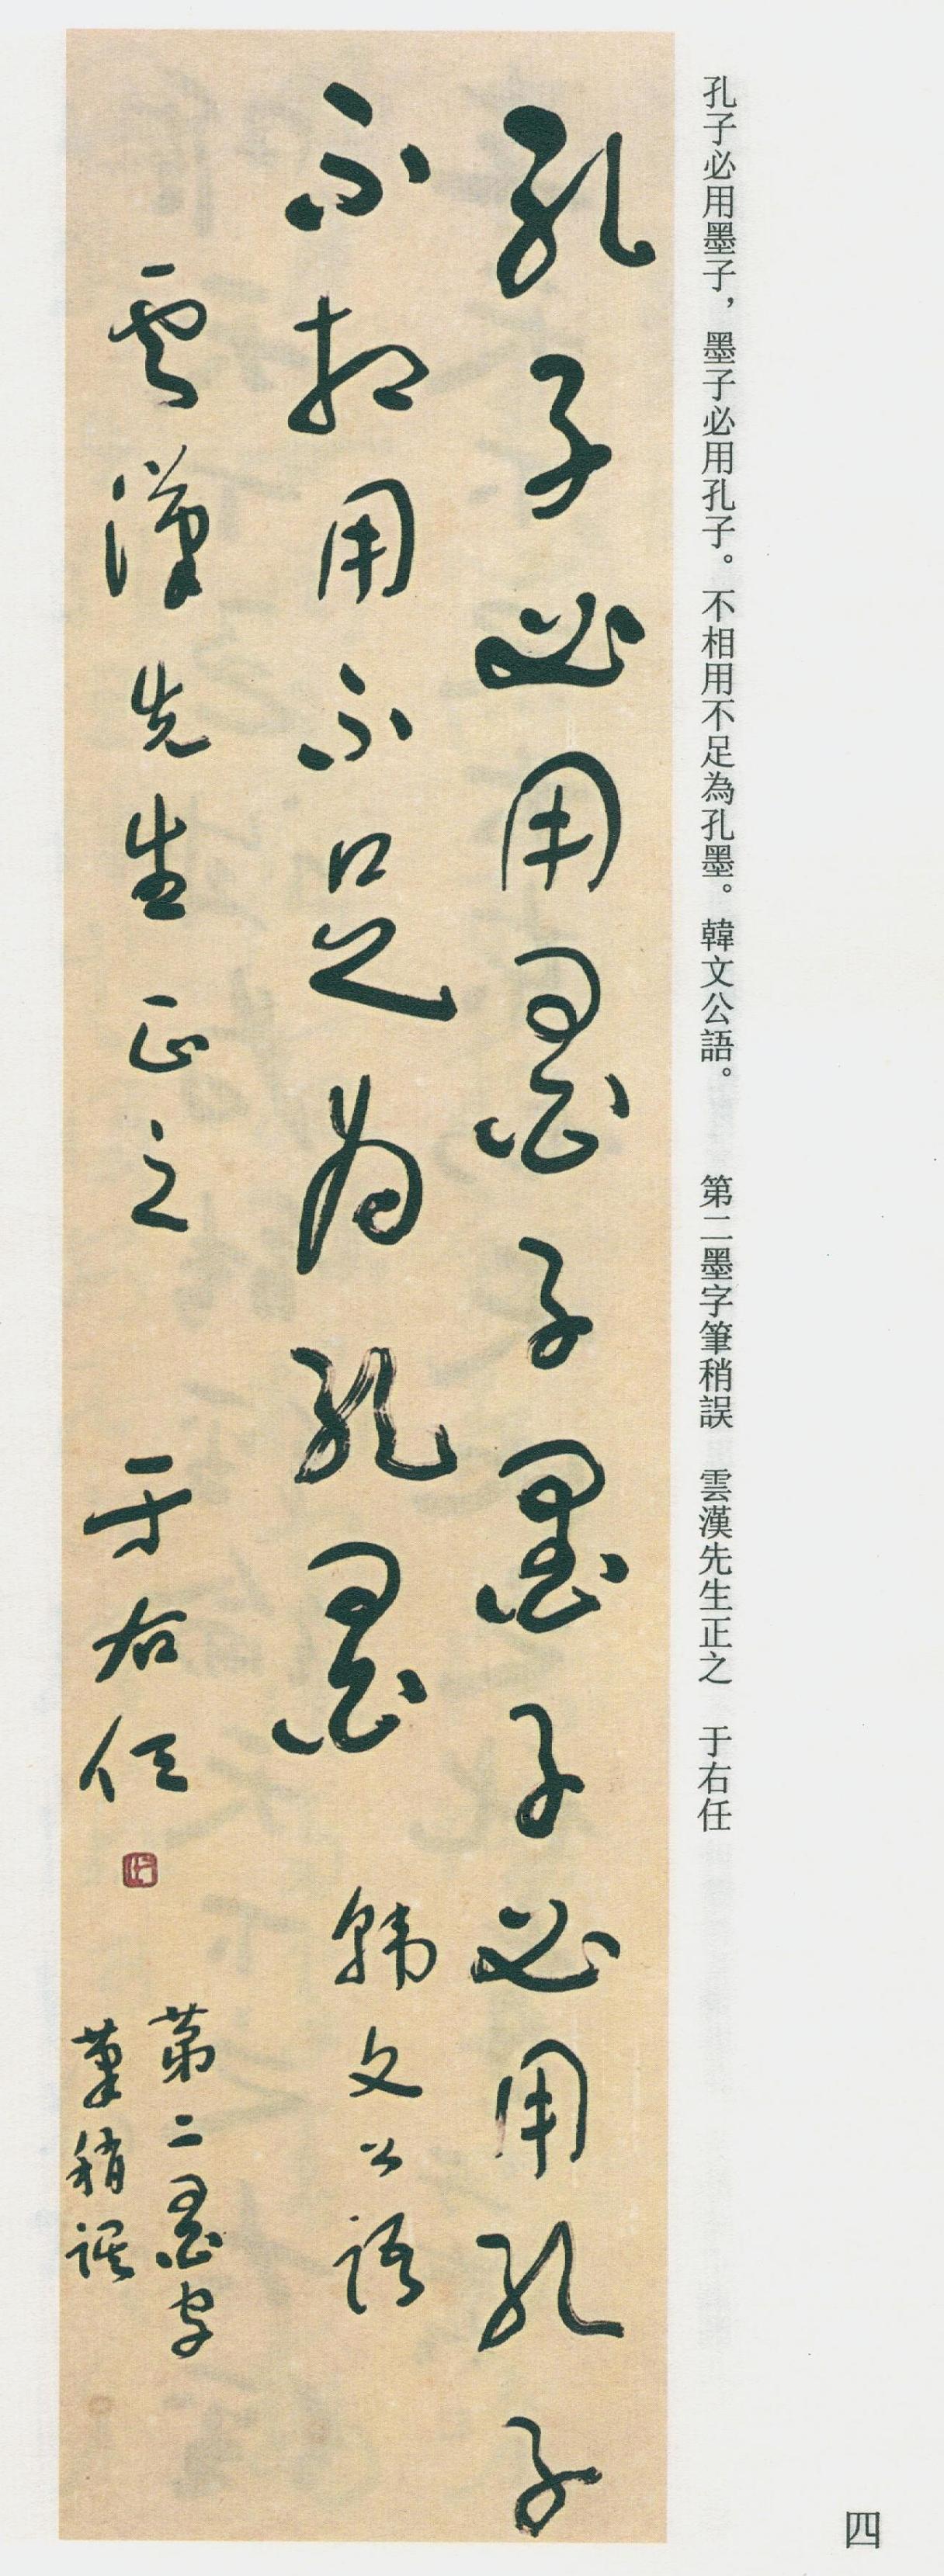 孔子必用墨子，墨子必用孔子。不相用不足為孔墨。韓文公語。　第二墨字筆稍誤　雲漢先生正之　于右任
孔子必用墨子墨子必用孔子
不相用不足為孔墨　韓文公語
雲漢先生正之　于右任
第二墨字
筆稍誤
四